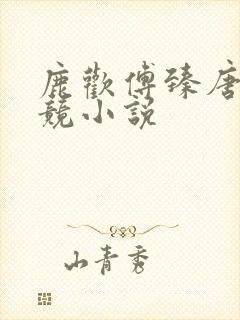 鹿歡傅臻唐
競小説
山青秀